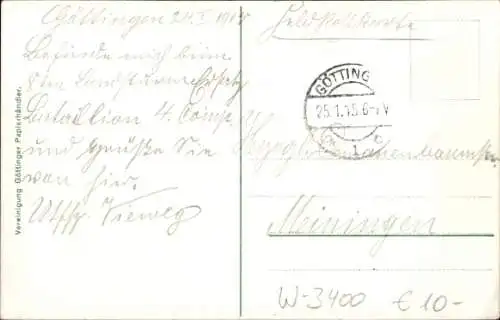 Göttingen 24.I.1915
Feldpostkarte
Befinde mich beim
Landsturm Ersatz
Bataillon 4. Comp.
und grüße Sie
von hier.
Uffz. Vieweg
GÖTTING
25.1.15.6-7V
1 c
Herzogl.
Meiningen
Vereinigung Göttinger Papierhändler.
W-3400 € 10-